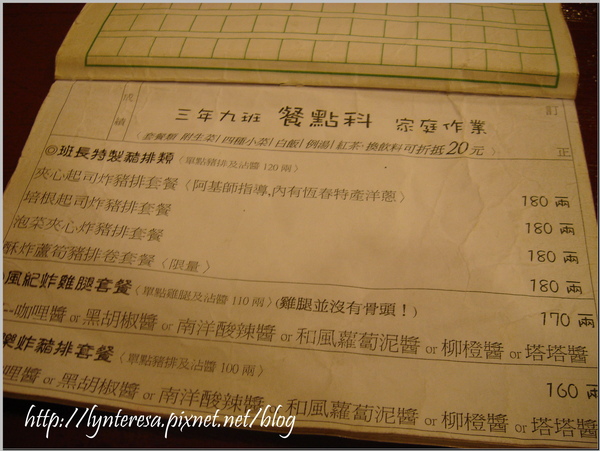 成績
訂正
三年九班 餐點科 家庭作業
〈套餐類 附生菜/四種小菜/白飯/例湯/紅茶‧換飲料可折抵20元〉
◎班長特製豬排類〈單點豬排及沾醬 120兩〉
夾心起司炸豬排套餐〈阿基師指導,內有恆春特產洋蔥〉 180兩
培根起司炸豬排套餐 180兩
泡菜夾心炸豬排套餐 180兩
酥炸蘆筍豬排卷套餐〈限量〉 180兩
風紀炸雞腿套餐〈單點雞腿及沾醬 110兩〉(雞腿並沒有骨頭!) 170兩
咖哩醬 or 黑胡椒醬 or 南洋酸辣醬 or 和風蘿蔔泥醬 or 柳橙醬 or 塔塔醬
炸豬排套餐〈單點豬排及沾醬 100兩〉 160兩
哩醬 or 黑胡椒醬 or 南洋酸辣醬 or 和風蘿蔔泥醬 or 柳橙醬 or 塔塔醬
http://lynteresa.pixnet.net/blog